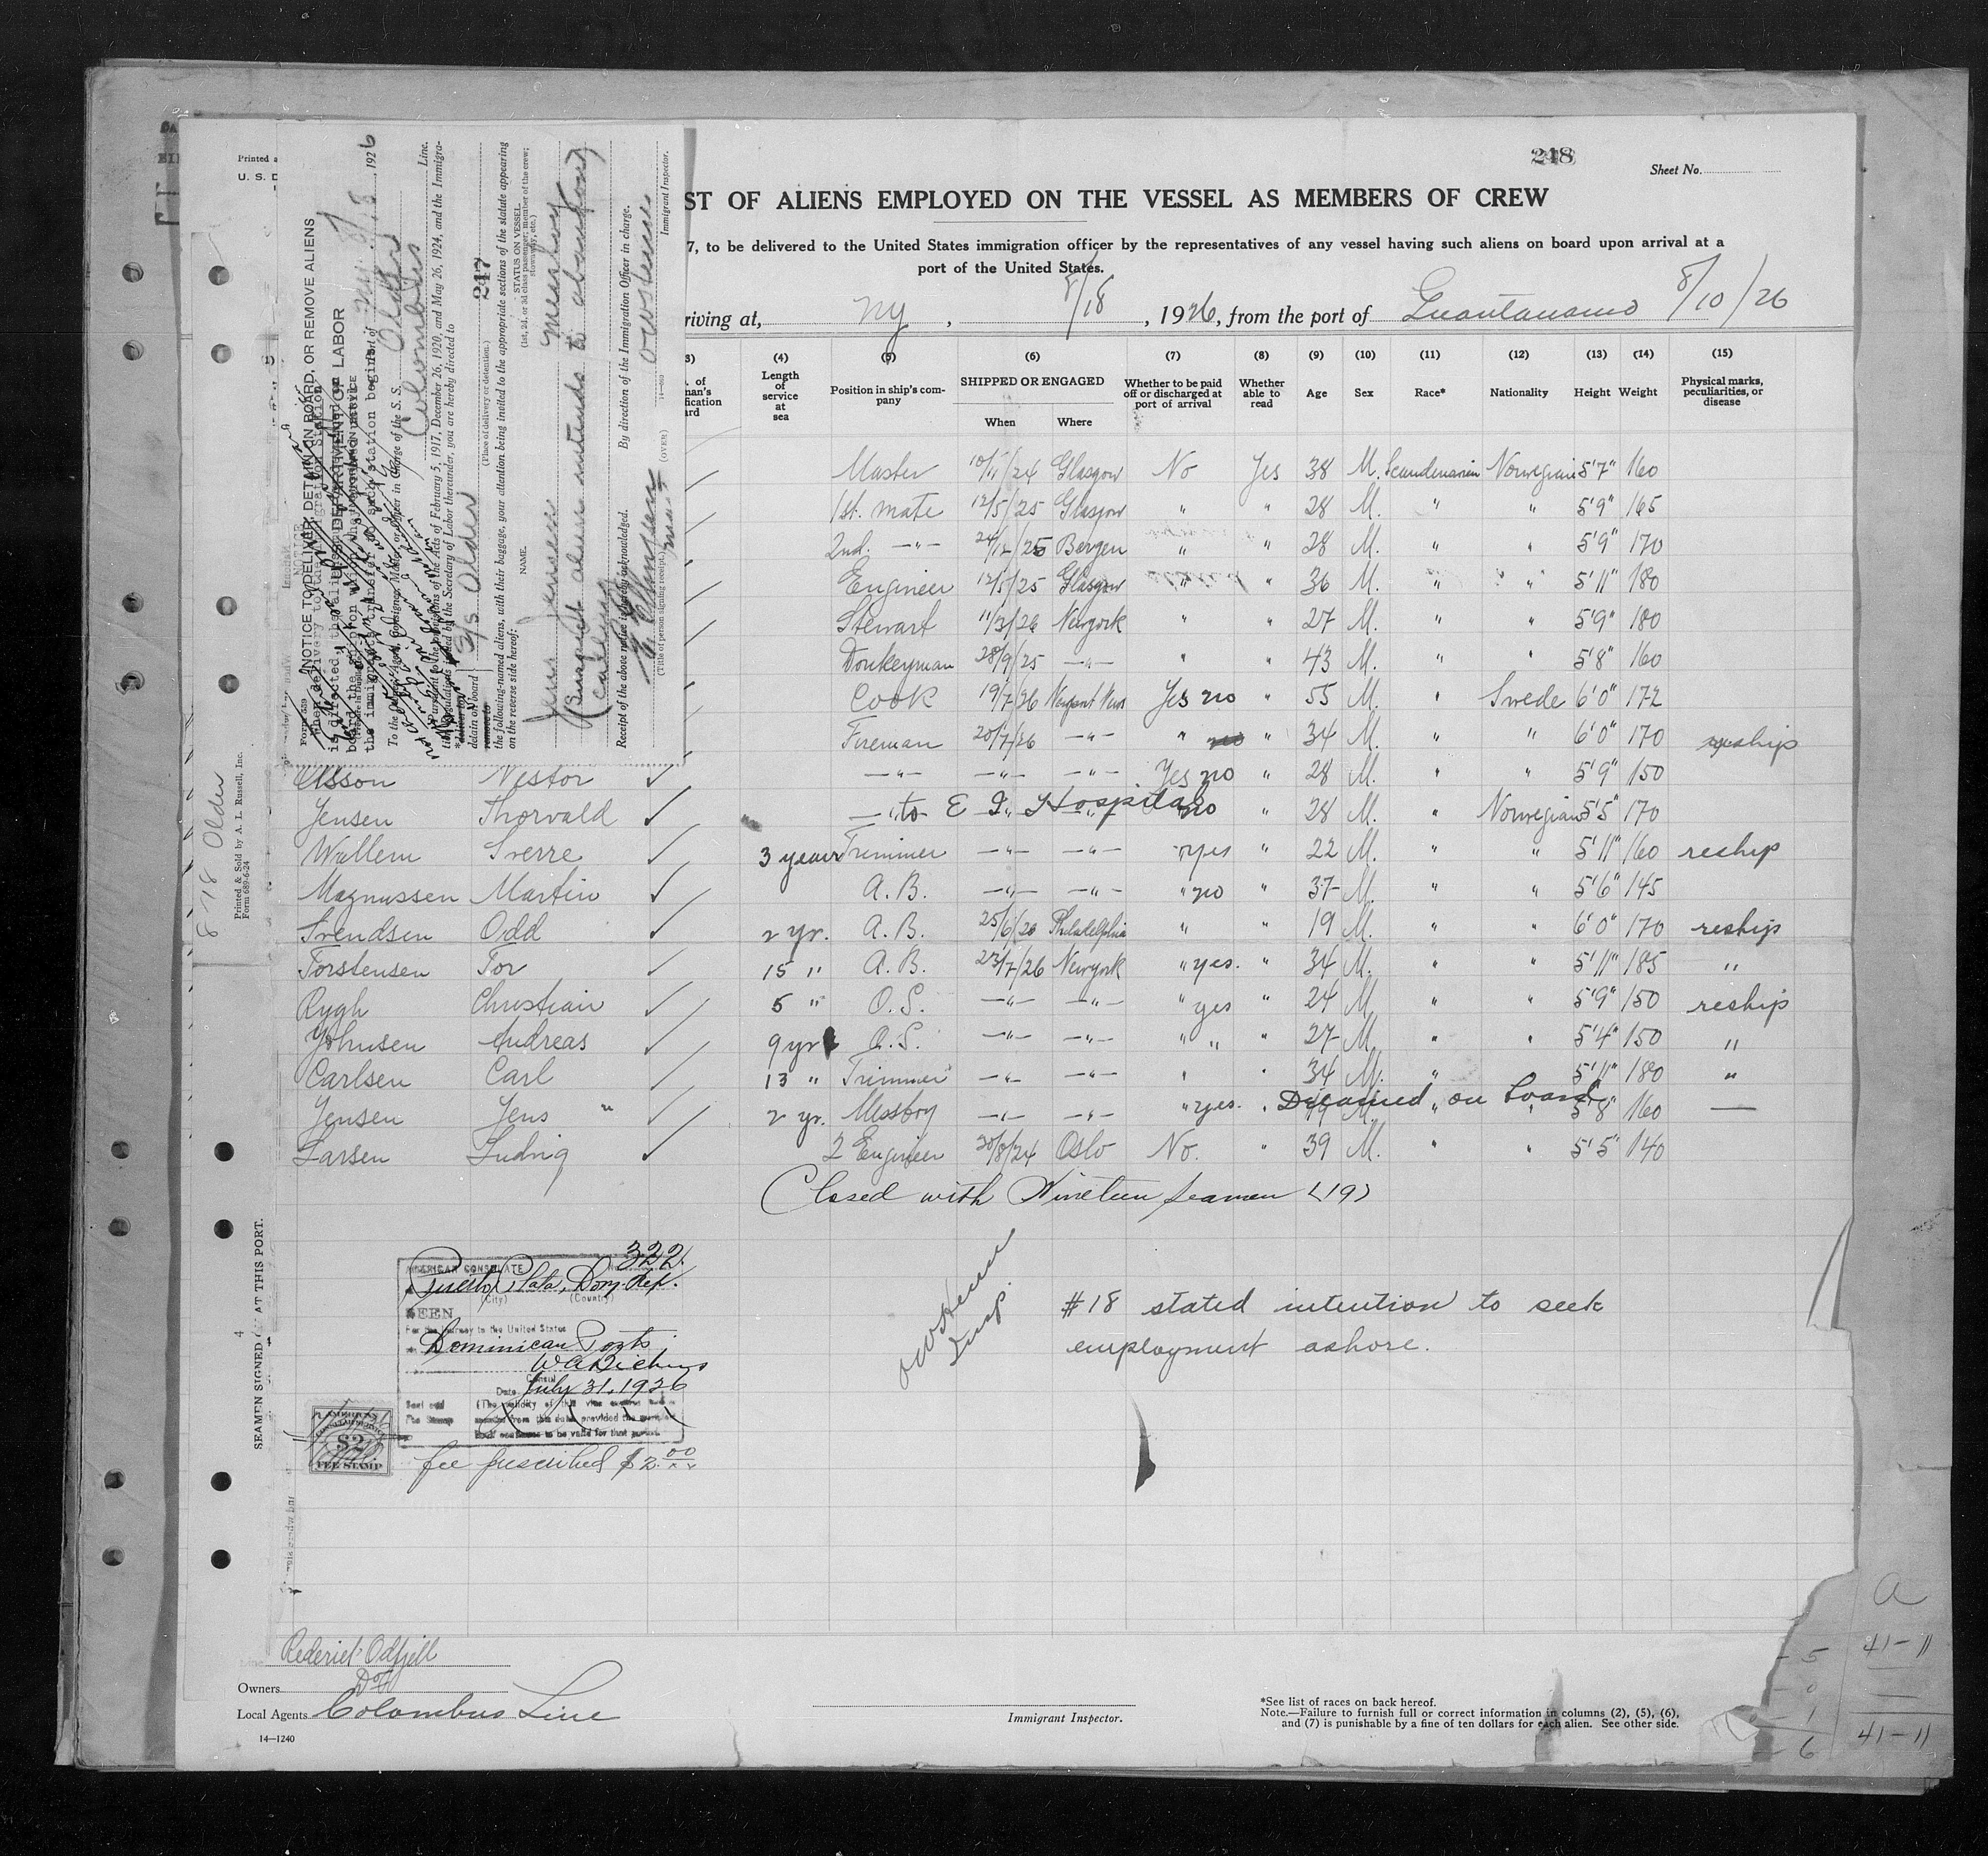 248
Sheet No.
ST OF ALIENS EMPLOYED ON THE VESSEL AS MEMBERS OF CREW
7, to be delivered to the United States immigration officer by the representatives of any vessel having such aliens on board upon arrival at a
port of the United States.
riving at, NY, 8/18, 1926, from the port of Guantanamo 8/10/26
(4) (5) (6) (7) (8) (9) (10) (11) (12) (13) (14) (15)
Length of service at sea
Position in ship's company
SHIPPED OR ENGAGED
When Where
Whether to be paid off or discharged at port of arrival
Whether able to read
Age Sex Race* Nationality Height Weight
Physical marks, peculiarities, or disease
Master 10/11/24 Glasgow No Yes 38 M. Scandinavian Norwegian 5'7" 160
1st. mate 12/5/25 Glasgow " " 28 M. " " 5'9" 165
2nd. —"— 24/12/25 Bergen " " 28 M. " " 5'9" 170
Engineer 12/5/25 Glasgow " " 36 M. " " 5'11" 180
Stewart 11/3/26 Newyork " " 27 M. " " 5'9" 180
Donkeyman 28/9/25 —"— " " 43 M. " " 5'8" 160
Cook 19/7/26 Newport News Yes no " 55 M. " Swede 6'0" 172
Fireman 20/7/26 —"— " " 34 M. " " 6'0" 170 reship
Olsson Nestor —"— —"— —"— Yes no " 28 M. " " 5'9" 150
Jensen Thorvald —"— to E I Hospital no " 28 M. " Norwegian 5'5" 170
Wallem Sverre 3 years Trimmer —"— —"— " yes " 22 M. " " 5'11" 160 reship
Magnussen Martin A.B. —"— —"— " no " 37 M. " " 5'6" 145
Svendsen Odd 2 yr. A.B. 25/6/26 Philadelphia " " 19 M. " " 6'0" 170 reship
Torstensen Tor 15 " A.B. 23/7/26 Newyork " yes. " 34 M. " " 5'11" 185 "
Rygh Christian 5 " O.S. —"— —"— " yes " 24 M. " " 5'9" 150 reship
Johnsen Andreas 9 yr O.S. —"— —"— " " " 27 M. " " 5'4" 150 "
Carlsen Carl 13 " Trimmer —"— —"— " " 34 M. " " 5'11" 180 "
Jensen Jens 2 yr. Messboy —"— —"— " yes. " Detained on board 5'8" 160 —
Larsen Ludvig 2 Engineer 20/8/24 Oslo No. " 39 M. " " 5'5" 140
Closed with Nineteen seamen (19)
#18 stated intention to seek
employment ashore.
Insp.
322
AMERICAN CONSULATE
Puerto Plata, Dom. Rep.
(City) (Country)
SEEN
For the journey to the United States
Dominican Ports
Consul
Date July 31, 1926
Seal and
Fee Stamp
$2
FEE STAMP
fee prescribed $2.00
Rederiet Odfjell
Owners Do
Local Agents Columbus Line
14—1240
Immigrant Inspector.
*See list of races on back hereof.
Note.—Failure to furnish full or correct information in columns (2), (5), (6),
and (7) is punishable by a fine of ten dollars for each alien. See other side.
Printed a
U. S. D
8-18 Older
Printed & Sold by A. L. Russell, Inc.
Form 689-6-24
SEAMEN SIGNED AT THIS PORT.
4
NOTICE TO DELIVER, DETAIN ON BOARD, OR REMOVE ALIENS
U. S. DEPARTMENT OF LABOR
NY. 8/18, 1926
S. S. Older
Columbus Line.
Pursuant to the provisions of the Acts of February 5, 1917, December 26, 1920, and May 26, 1924, and the Immigra-
tion Regulations issued by the Secretary of Labor thereunder, you are hereby directed to
detain on board S/S Older 247
(Place of delivery or detention.)
the following-named aliens, with their baggage, your attention being invited to the appropriate sections of the statute appearing
on the reverse side hereof:
NAME. STATUS ON VESSEL.
(1st, 2d, or 3d class passenger; member of the crew; stowaway, etc.)
Jens Jensen Messboy
(Suspect alien intends to abandon
calling)
By direction of the Immigration Officer in charge.
Immigrant Inspector.
Receipt of the above notice is hereby acknowledged.
(Title of person signing receipt.)
(OVER)
a
41-11
5
0
1
6
41-11